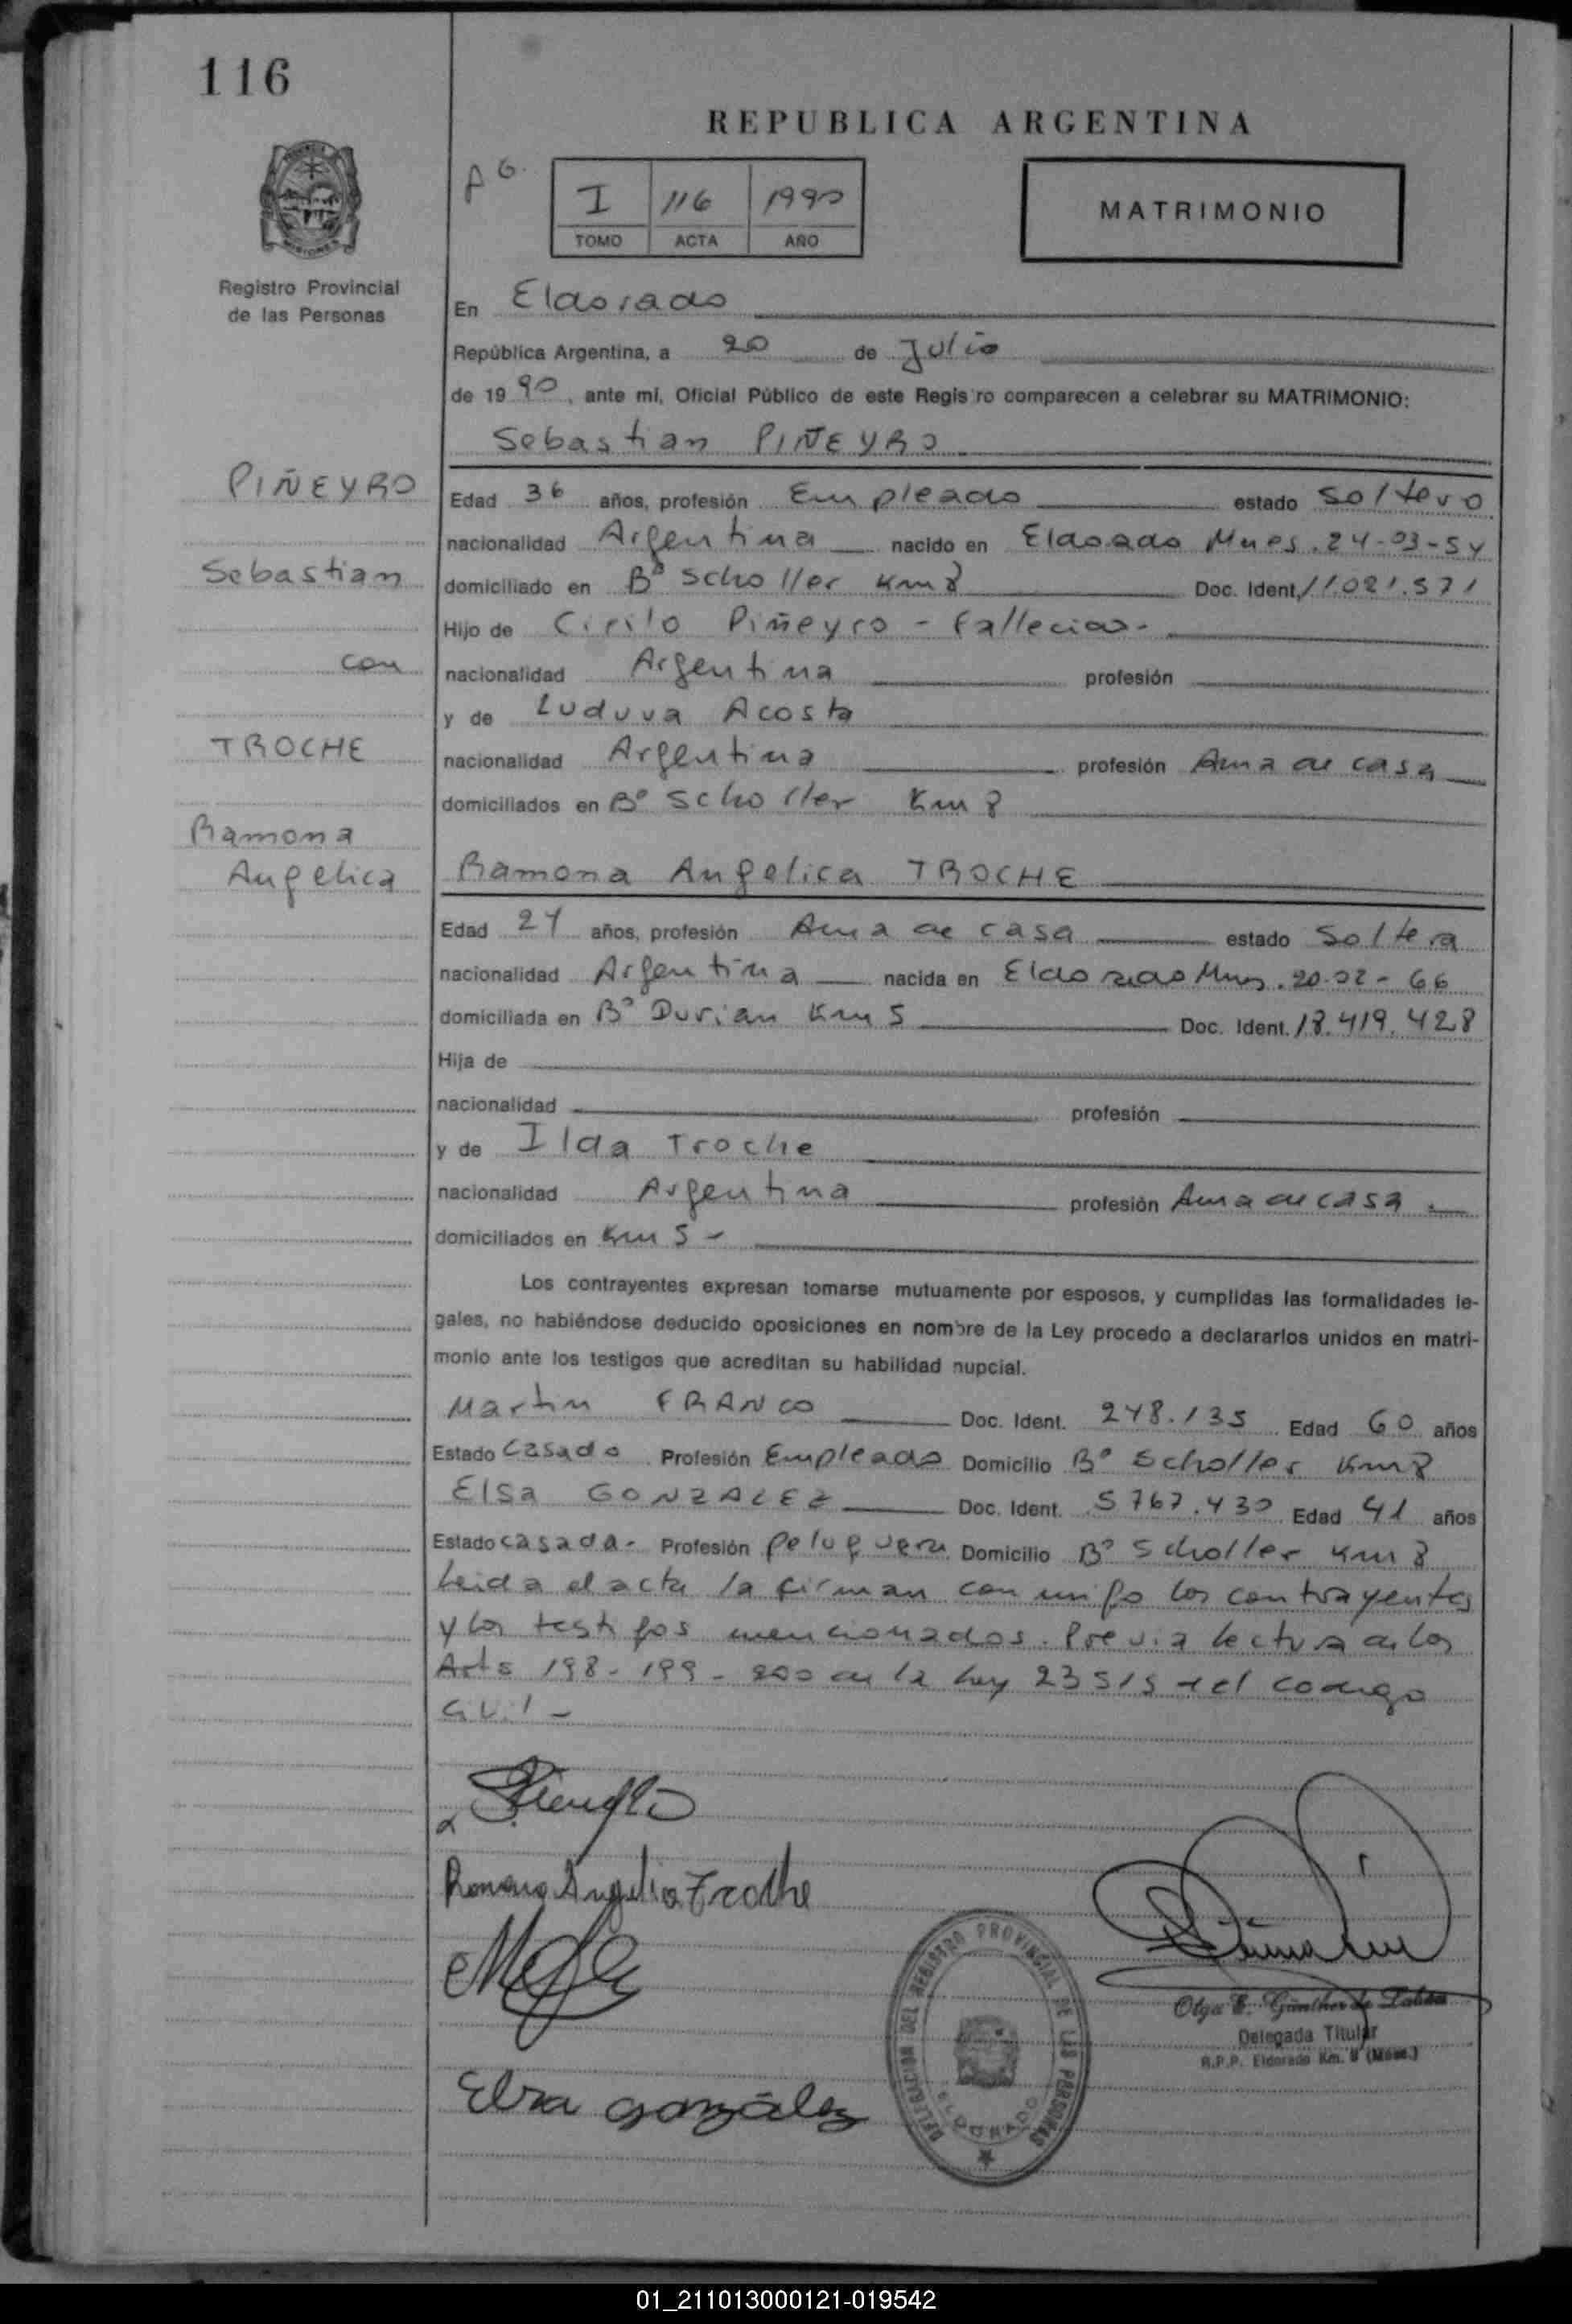 116
REPUBLICA ARGENTINA
I 116 1990
TOMO ACTA AÑO
MATRIMONIO
Registro Provincial
de las Personas
En Eldorado
República Argentina, a 20 de Julio
de 19 90, ante mí, Oficial Público de este Registro comparecen a celebrar su MATRIMONIO:
Sebastian PIÑEYRO
PIÑEYRO
Sebastian
con
TROCHE
Ramona
Angelica
Edad 36 años, profesión Empleado estado Soltero
nacionalidad Argentina nacido en Eldorado Mnes. 24-03-54
domiciliado en Bº Scholler Km 8 Doc. Ident. 11.021.571
Hijo de Cirilo Piñeyro - Fallecido -
nacionalidad Argentina profesión
y de Acosta
nacionalidad Argentina profesión Ama de casa
domiciliados en Bº Scholler Km 8
Ramona Angelica TROCHE
Edad 24 años, profesión Ama de casa estado Soltera
nacionalidad Argentina nacida en Eldorado Mnes. 20-02-66
domiciliada en Bº Durian Km 5 Doc. Ident. 18.419.428
Hija de
nacionalidad profesión
y de Ilda Troche
nacionalidad Argentina profesión Ama de casa.
domiciliados en Km 5 -
Los contrayentes expresan tomarse mutuamente por esposos, y cumplidas las formalidades le-
gales, no habiéndose deducido oposiciones en nombre de la Ley procedo a declararlos unidos en matri-
monio ante los testigos que acreditan su habilidad nupcial.
Martin FRANCO Doc. Ident. 248.135 Edad 60 años
Estado Casado Profesión Empleado Domicilio Bº Scholler Km 8
Elsa GONZALEZ Doc. Ident. 5767.430 Edad 41 años
Estado casada - Profesión peluquera Domicilio Bº Scholler Km 8
Leida el acta la firman conmigo los contrayentes
y los testigos mencionados. Previa lectura de los
Arts 198 - 199 - 200 de la Ley 23515 del codigo
Civil -
Ramona Angelica Troche
Elsa González
DELEGACION DEL REGISTRO PROVINCIAL DE LAS PERSONAS
ELDORADO
Olga E. Günther de
Delegada Titular
R.P.P. Eldorado Km. 8 (Mnes.)
01_211013000121-019542